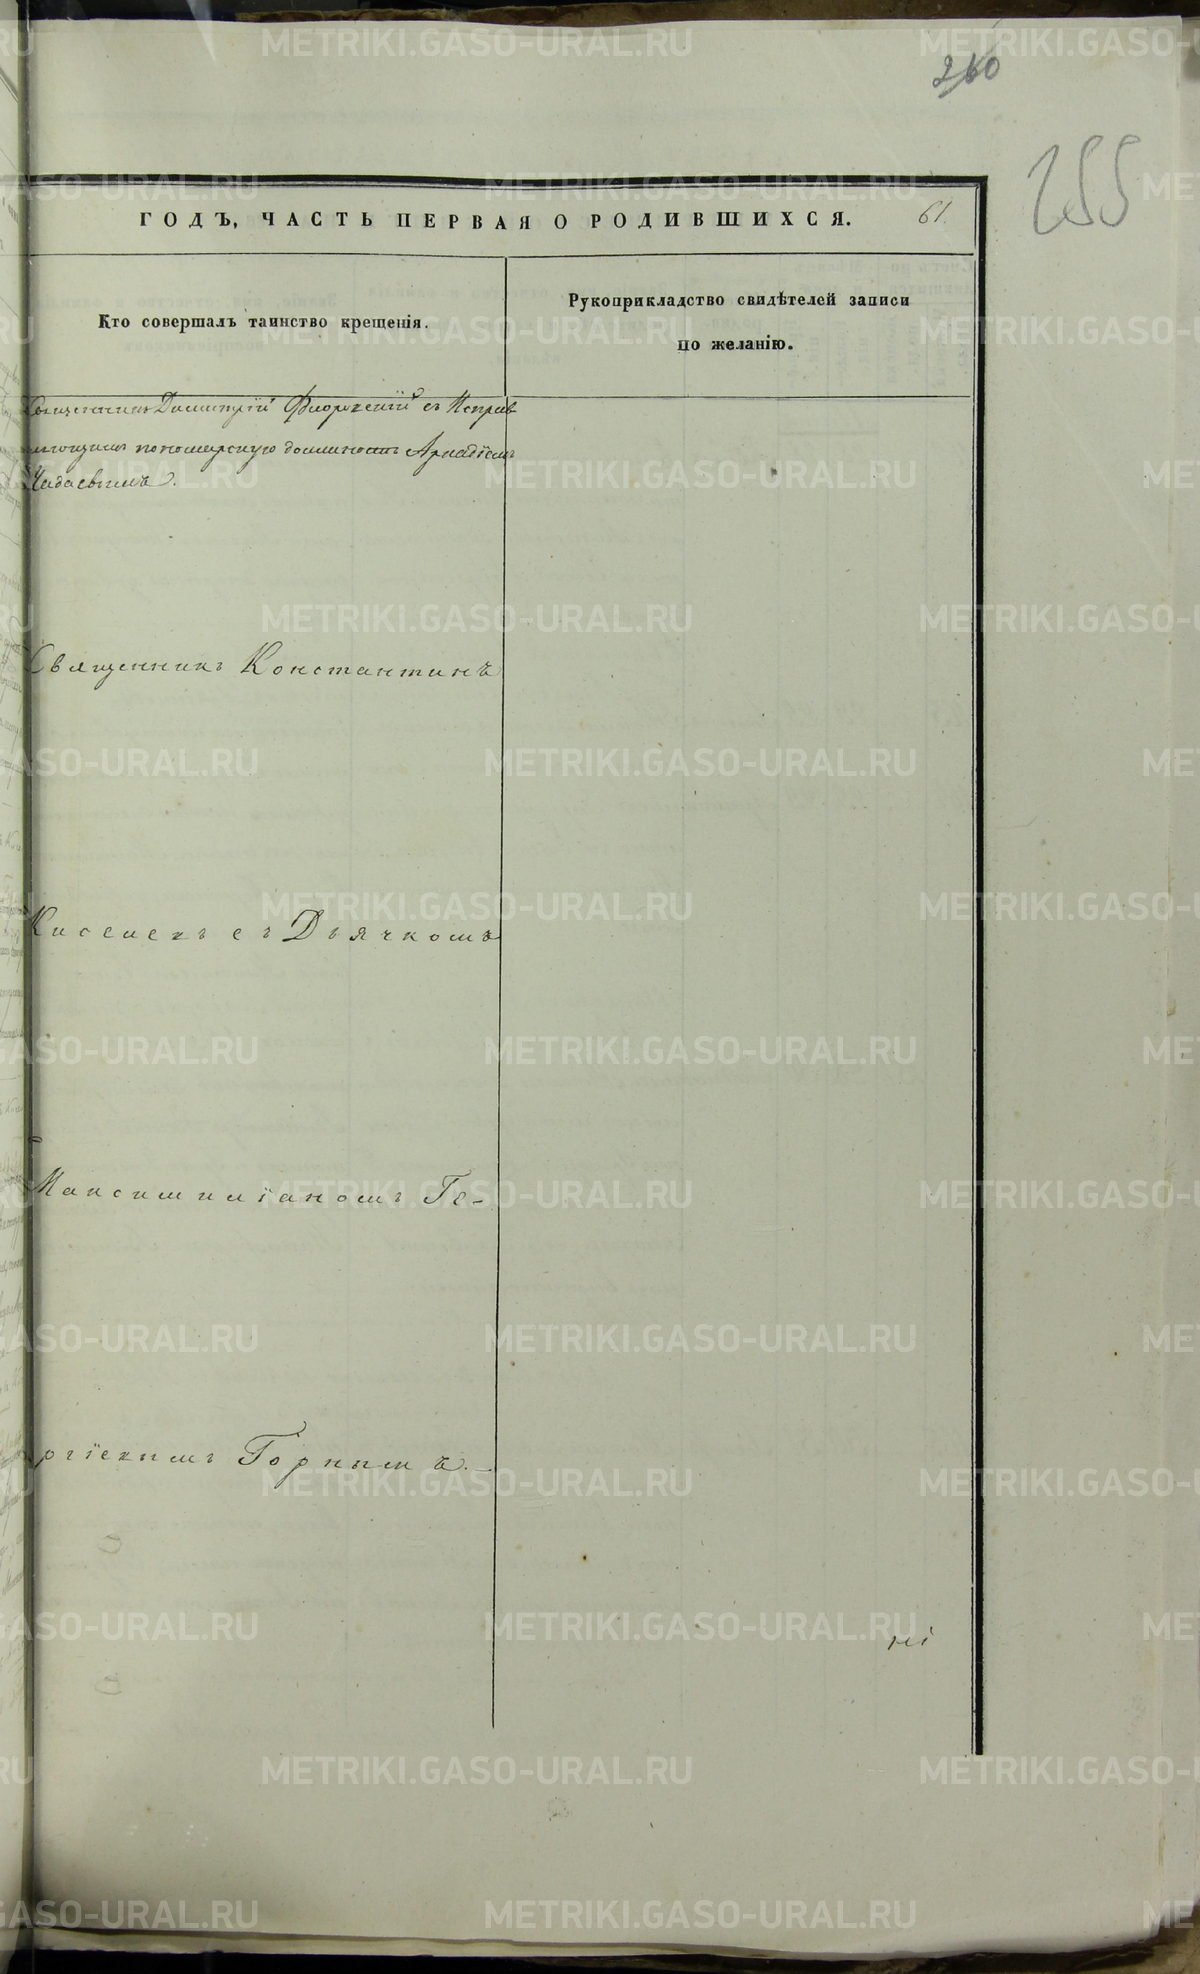 260
255
ГОДЪ, ЧАСТЬ ПЕРВАЯ О РОДИВШИХСЯ. 61.
Кто совершалъ таинство крещенія.
Рукоприкладство свидѣтелей записи
по желанію.
Священникъ Димитрій Флоровскій съ Исправ
ляющимъ пономарскую должность Аркадіемъ
Чадаевымъ.
Священникъ Константинъ
Киселевъ съ Дьячкомъ
Максимиліаномъ Ге-
оргіевымъ Горнымъ.
METRIKI.GASO-URAL.RU